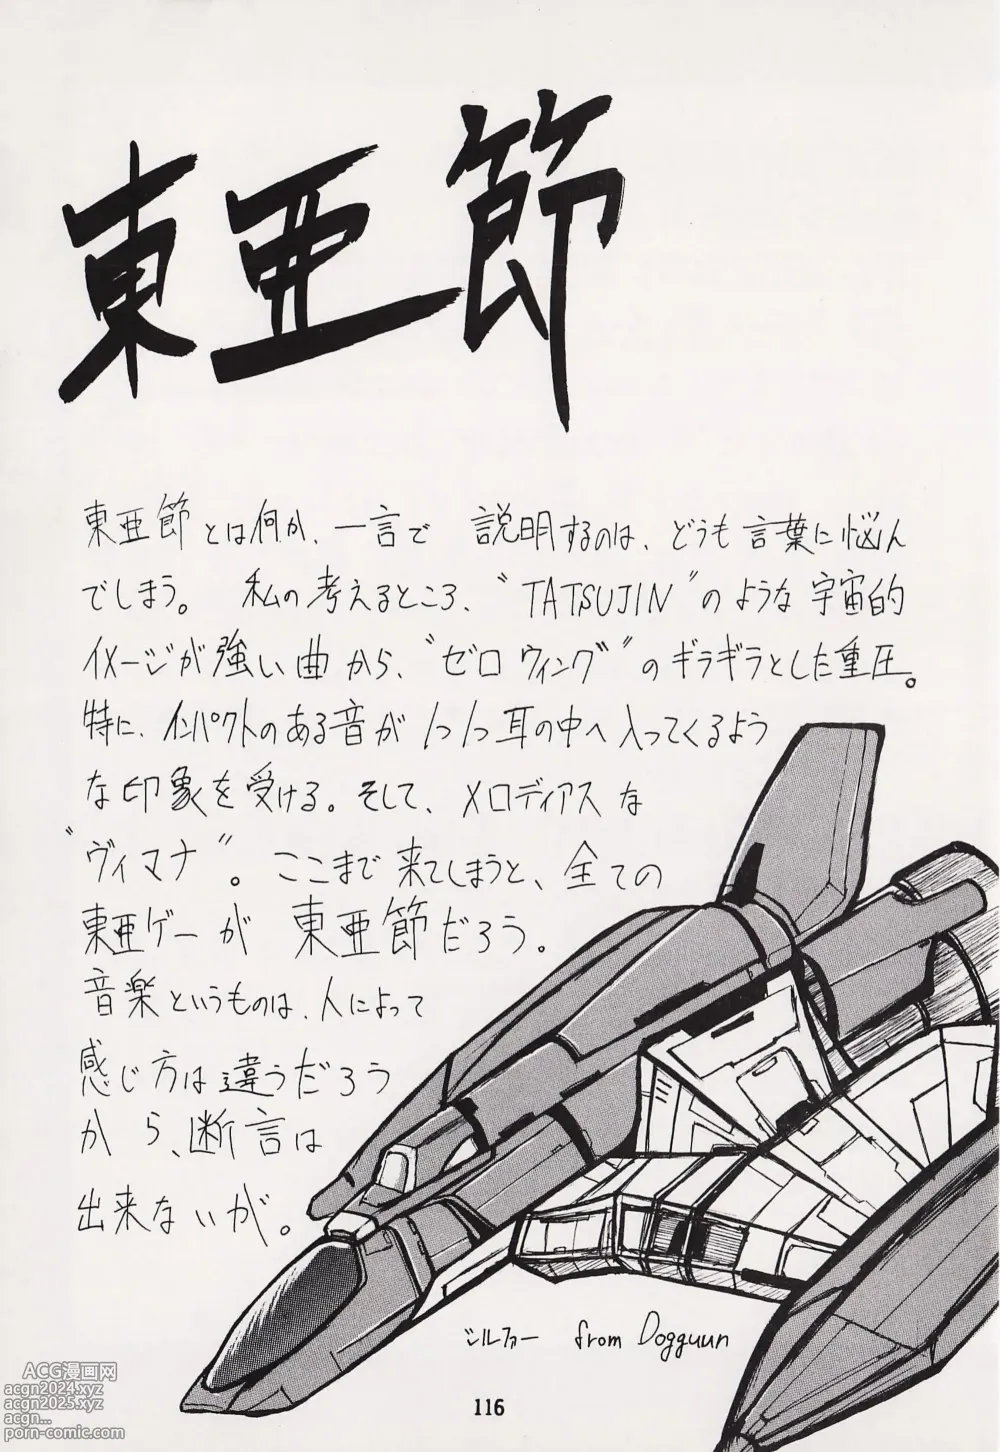 東亜節
東亜節とは何か、一言で 説明するのは、どうも言葉に悩ん
でしまう。 私の考えるところ、“TATSUJIN”のような宇宙的
イメージが強い曲から、“ゼロウィング”のギラギラとした重圧。
特に、インパクトのある音が 耳の中へ入ってくるよう
な印象を受ける。そして、メロディアスな
“ヴィマナ”。ここまで来てしまうと、全ての
東亜ゲーが 東亜節だろう。
音楽というものは、人によって
感じ方は違うだろう
から、断言は
出来ないが。
シルファー from Dogguun
116
ACG漫画网
acgn2024.xyz
acgn2025.xyz
acgn...
porn-comic.com